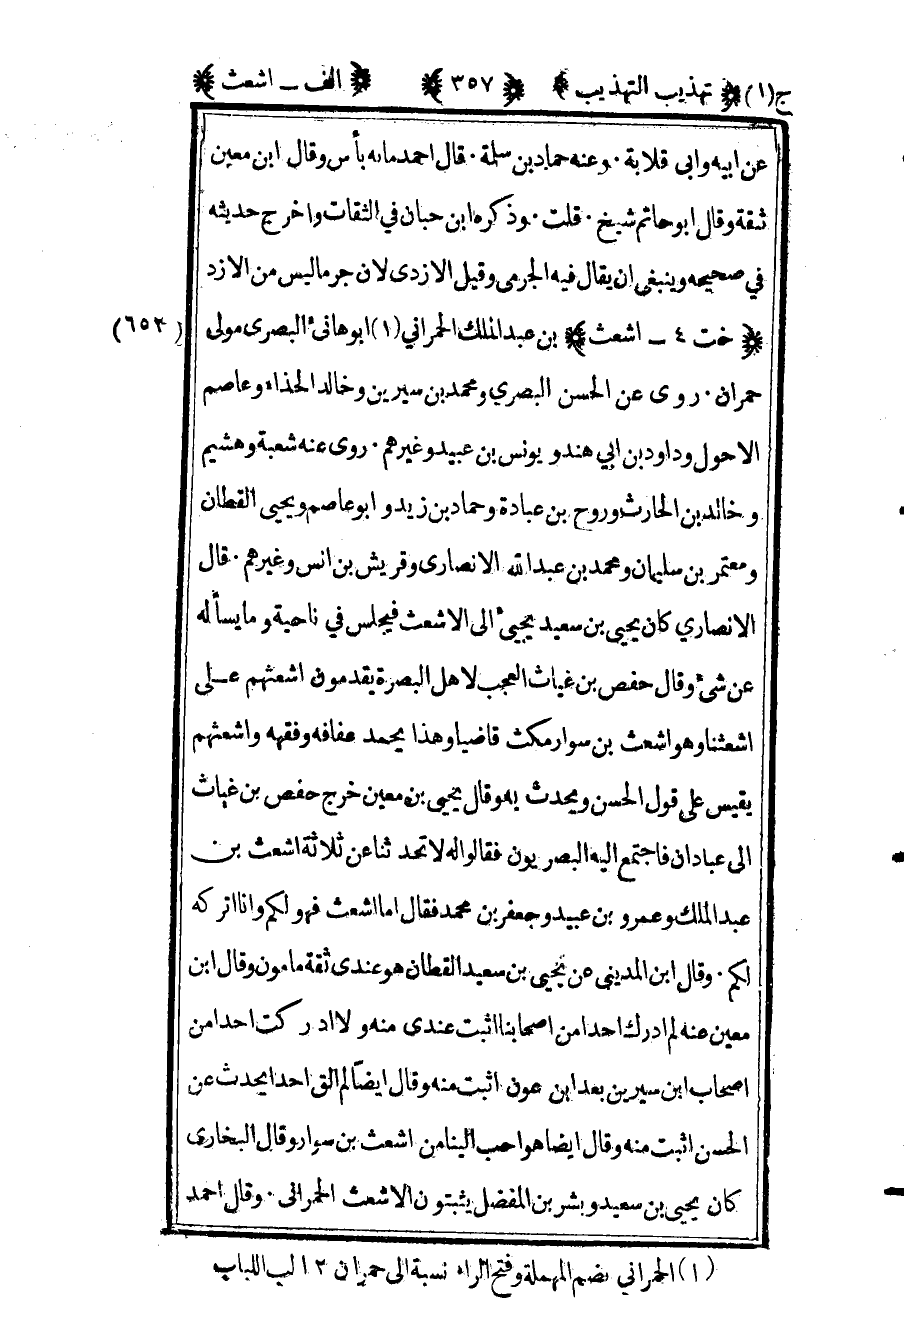 ج(١) ﴿ تهذيب التهذيب ﴾ ﴿ ٣٥٧ ﴾ ﴿ الف ـ اشعث ﴾
عن ابيه وابى قلابة · وعنه حماد بن سلمة · قال احمد مابه بأس وقال ابن معين
ثقة وقال ابو حاتم شيخ · قلت · وذكره ابن حبان في الثقات واخرج حديثه
في صحيحه وينبغى ان يقال فيه الجرمى وقيل الازدى لان جرما ليس من الازد
﴿ خت ٤ ـ اشعث ﴾ بن عبد الملك الحمراني (١) ابوهانئ البصرى مولى (٦٥٣)
حمران · روى عن الحسن البصري ومحمد بن سيرين وخالد الحذاء وعاصم
الاحول وداود بن ابي هند ويونس بن عبيد وغيرهم · روى عنه شعبة وهشيم
وخالد بن الحارث وروح بن عبادة وحماد بن زيد وابو عاصم ويحيى القطان
ومعتمر بن سليمان ومحمد بن عبد الله الانصارى وقريش بن انس وغيرهم · قال
الانصاري كان يحيى بن سعيد يجيئ الى الاشعث فيجلس في ناحية وما يسأله
عن شئ وقال حفص بن غياث العجب لاهل البصرة يقدمون اشعثهم عـلى
اشعثنا وهو اشعث بن سوار مكث قاضيا وهذا يحمد عفافه وفقهه واشعثهم
يقيس على قول الحسن ويحدث به وقال يحيى بن معين خرج حفص بن غياث
الى عبادان فاجتمع اليه البصريون فقالوا له لا تحدثنا عن ثلاثة اشعث بن
عبد الملك وعمرو بن عبيد وجعفر بن محمد فقال اما اشعث فهو لكم وانا اتركه
لكم · وقال ابن المدينى عن يحيى بن سعيد القطان هو عندى ثقة مامون وقال ابن
معين عنه لم ادرك احدا من اصحابنا اثبت عندى منه ولا ادركت احدا من
اصحاب ابن سيرين بعد ابن عون اثبت منه وقال ايضا لم الق احدا يحدث عن
الحسن اثبت منه وقال ايضا هو احب الينا من اشعث بن سوار وقال البخارى
كان يحيى بن سعيد وبشر بن المفضل يثبتون الاشعث الحمرانى · وقال احمد
(١) الحمراني بضم المهملة وفتح الراء نسبة الى حمران ١٢ لب اللباب